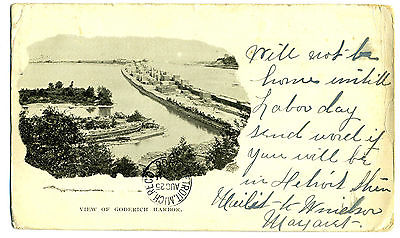 Will not be
home intill
Labor day
send word if
you will be
in Detroit then
to Windsor
Margaret.
VIEW OF GODERICH HARBOR.
DETROIT, MICH. REC'D
AUG 25